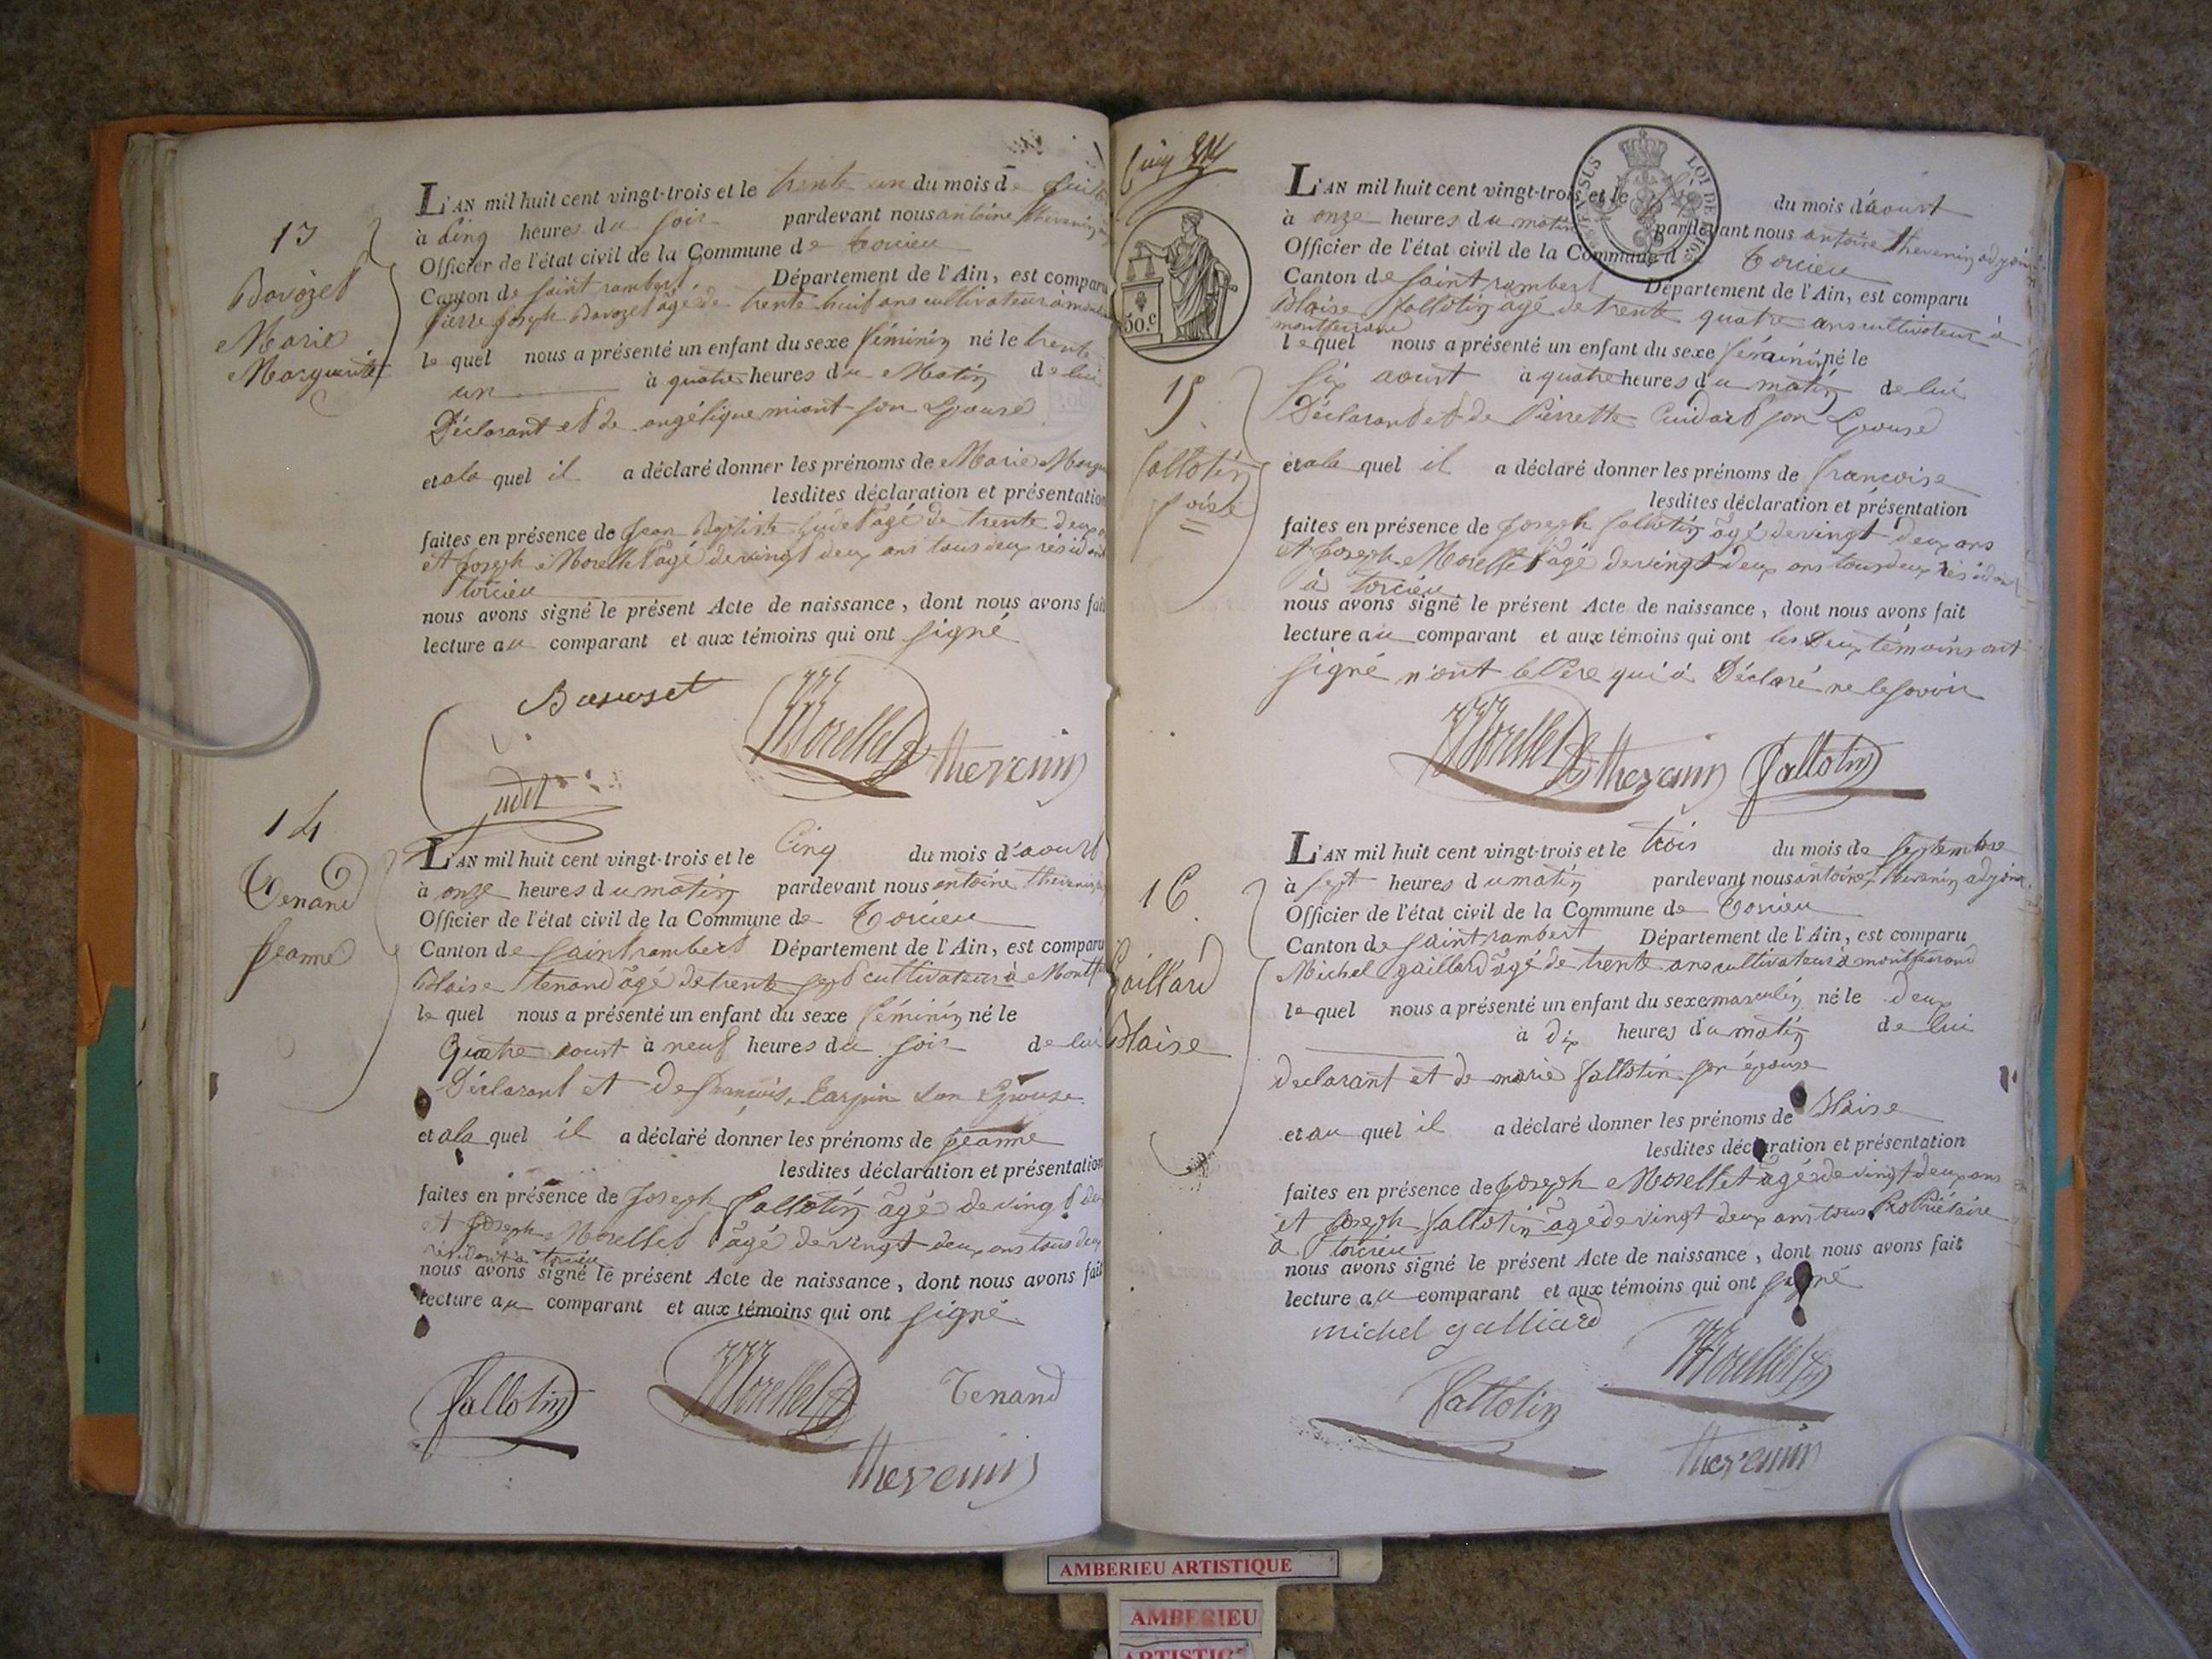 13
Bavozet
Marie
Marguerite
L'AN mil huit cent vingt-trois et le trente un du mois de juillet
à cinq heures du soir pardevant nous antoine thevenin
Officier de l'état civil de la Commune de torcieu
Canton de saint rambert Département de l'Ain, est comparu
Pierre joseph Bavozet âgé de trente huit ans cultivateur à
le quel nous a présenté un enfant du sexe féminin né le trente
un à quatre heures du Matin de lui
Déclarant et de angélique miont son Epouse
et a la quel il a déclaré donner les prénoms de Marie Margue
lesdites déclaration et présentation
faites en présence de jean Baptiste judet âgé de trente deux
et joseph Morellet âgé de vingt deux ans tous deux résidant
torcieu
nous avons signé le présent Acte de naissance, dont nous avons fait
lecture au comparant et aux témoins qui ont signé
Bavoset
Morellet
thevenin
judet
14
Tenand
jeanne
L'AN mil huit cent vingt-trois et le Cinq du mois d'aoust
à onze heures du matin pardevant nous antoine thevenin
Officier de l'état civil de la Commune de Torcieu
Canton de saint rambert Département de l'Ain, est comparu
Blaise tenand âgé de trente sept cultivateur à Montf
le quel nous a présenté un enfant du sexe féminin né le
Quatre aoust à neuf heures du soir de lui
Déclarant et De françoise Carpin son Epouse
et a la quel il a déclaré donner les prénoms de jeanne
lesdites déclaration et présentation
faites en présence de joseph fallotin âgé de vingt deu
et joseph Morellet âgé de vingt deux ans tous deux
résidant à torcieu
nous avons signé le présent Acte de naissance, dont nous avons fait
lecture au comparant et aux témoins qui ont signé
fallotin
Morellet
Tenand
thevenin
50.c
15
fallotin
L'AN mil huit cent vingt-trois et le du mois d'aoust
à onze heures du matin pardevant nous antoine thevenin adjoint
Officier de l'état civil de la Commune d Torcieu
Canton de saint rambert Département de l'Ain, est comparu
Blaise fallotin âgé de trente quatre ans cultivateur à
montferrand
le quel nous a présenté un enfant du sexe féminin né le
six aoust à quatre heures du matin de lui
Déclarant et de Pierrette Cuidard son Epouse
et a la quel il a déclaré donner les prénoms de francoise
lesdites déclaration et présentation
faites en présence de joseph fallotin âgé de vingt deux ans
et joseph Morellet âgé de vingt deux ans tous deux résidant
à torcieu
nous avons signé le présent Acte de naissance, dont nous avons fait
lecture au comparant et aux témoins qui ont les Deux témoins ont
signé n'ont le Père qui à Déclaré ne le savoir
Morellet
thevenin
fallotin
16
Gaillard
Blaise
L'AN mil huit cent vingt-trois et le trois du mois de septembre
à sept heures du matin pardevant nous antoine thevenin adjoint
Officier de l'état civil de la Commune de torcieu
Canton de saint rambert Département de l'Ain, est comparu
Michel gaillard âgé de trente ans cultivateur à montferrand
le quel nous a présenté un enfant du sexe masculin né le deux
à dix heures du matin de lui
declarant et de marie fallotin son épouse
et au quel il a déclaré donner les prénoms de Blaise
lesdites déclaration et présentation
faites en présence de joseph Morellet âgé de vingt deux ans
et joseph fallotin âgé de vingt deux ans tous Propriétaire
à torcieu
nous avons signé le présent Acte de naissance, dont nous avons fait
lecture au comparant et aux témoins qui ont signé
michel galliard
Morellet
fallotin
thevenin
AMBERIEU ARTISTIQUE
AMBERIEU